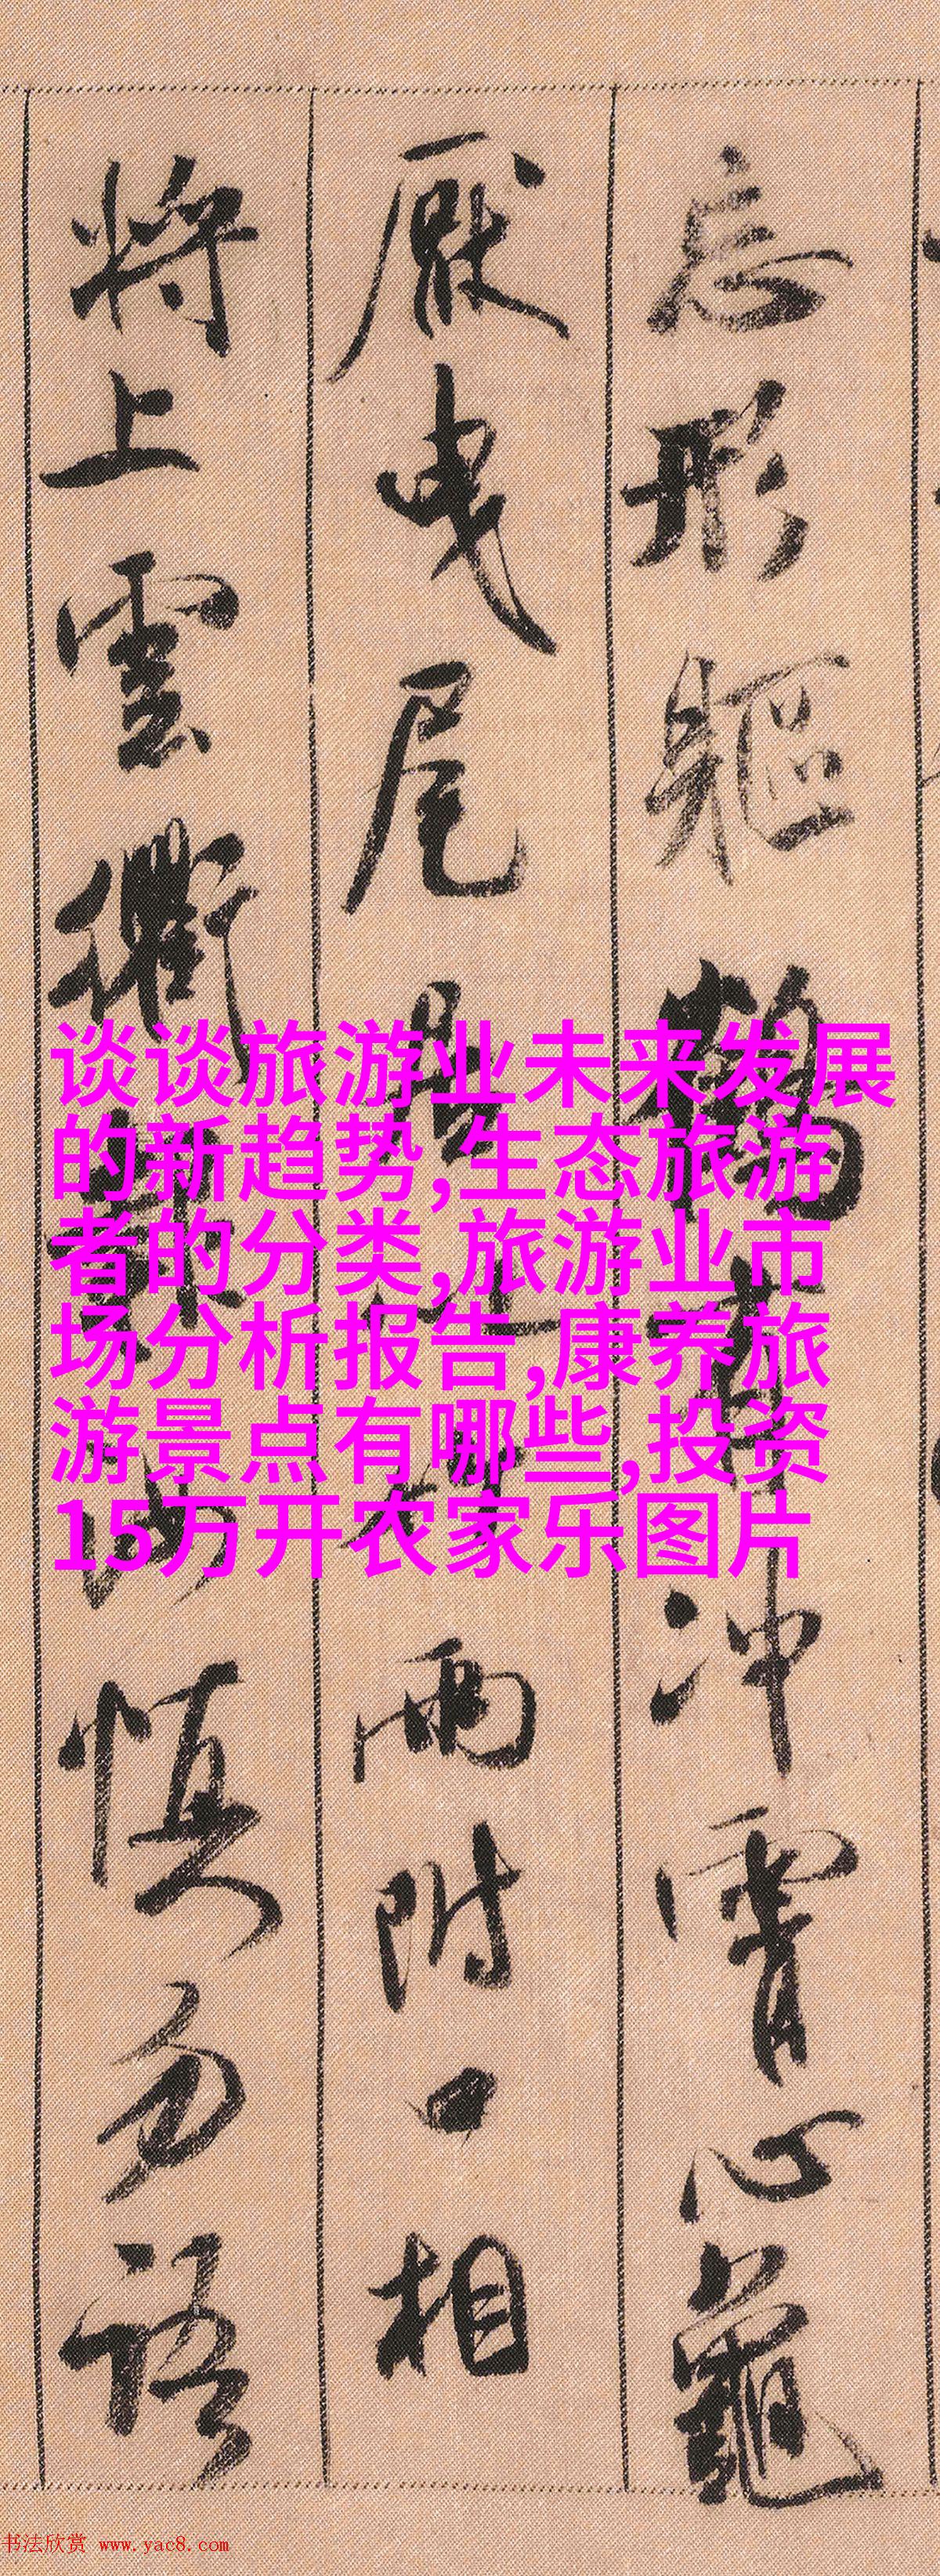 忘形軀鶴有冲霄心龜
厭曳尾居以竹兩附口相
將上雲衢報汝慎勿語
谈谈旅游业未来发展
的新趋势,生态旅游
者的分类,旅游业市
场分析报告,康养旅
游景点有哪些,投资
15万开农家乐图片
书法欣赏 www.yac8.com